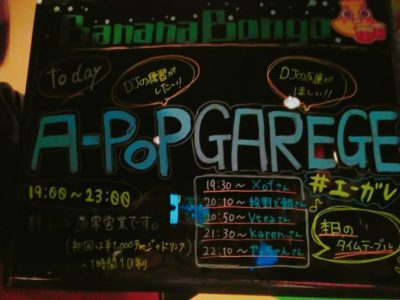 Banana Bongo
Today
DJの練習が
したい!!
DJの友達が
ほしい!!
A-POP GAREGE
19:00~23:00
通常営業です。
(初回は¥1,000チャージ+1ドリンク)
~1時間1D制
19:30~ Xofさん
20:10~
20:50~ Vteaさん
21:30~ karenさん
22:10~
#エーガレ
本日の
タイムテーブル